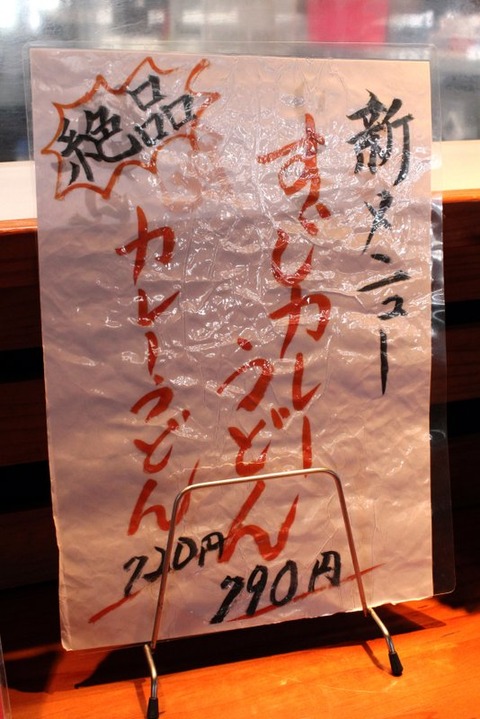 新メニュー
すじカレー
うどん
790円
絶品
カレーうどん
720円